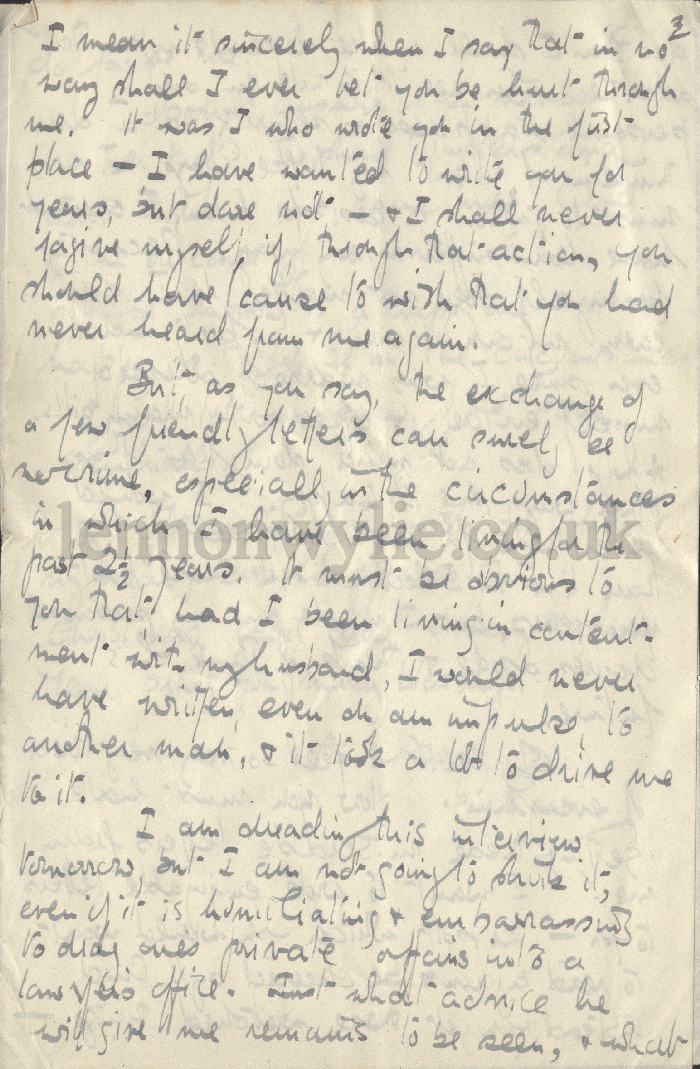 3
I mean it sincerely when I say that in no
way shall I ever let you be hurt through
me. It was I who wrote you in the first
place – I have wanted to write you for
years, but dare not – & I shall never
forgive myself if, through that action, you
should have cause to wish that you had
never heard from me again.
But, as you say, the exchange of
a few friendly letters can surely be
no crime, especially in the circumstances
in which I have been living for the
past 2½ years. It must be obvious to
you that had I been living in content-
ment with my husband, I would never
have written, even on an impulse, to
another man, & it took a lot to drive me
to it.
I am dreading this interview
tomorrow, but I am not going to shirk it,
even if it is humiliating & embarrassing
to drag one's private affairs into a
lawyer's office. Just what advice he
will give me remains to be seen, & what
lennonwylie.co.uk